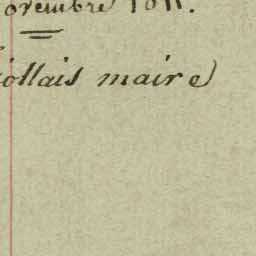 ovembre
ollais maire